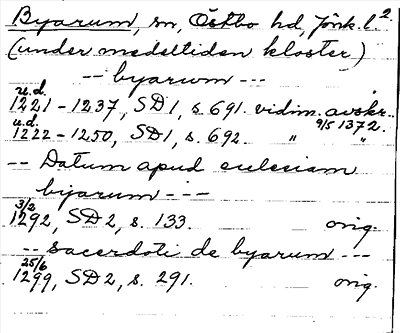 Byarum, sn, Östbo hd, Jönk. l. 2.
(under medeltiden kloster)
-- byarum ---
u.d.
1221 - 1237, SD1, s. 691. vidim. avskr.
u.d. 9/5 1372.
1222 - 1250, SD1, s. 692. " "
-- Datum apud eclesiam
byarum ---
3/2
1292, SD2, s. 133. orig.
-- sacerdoti de byarum ---
25/6
1299, SD2, s. 291. orig.